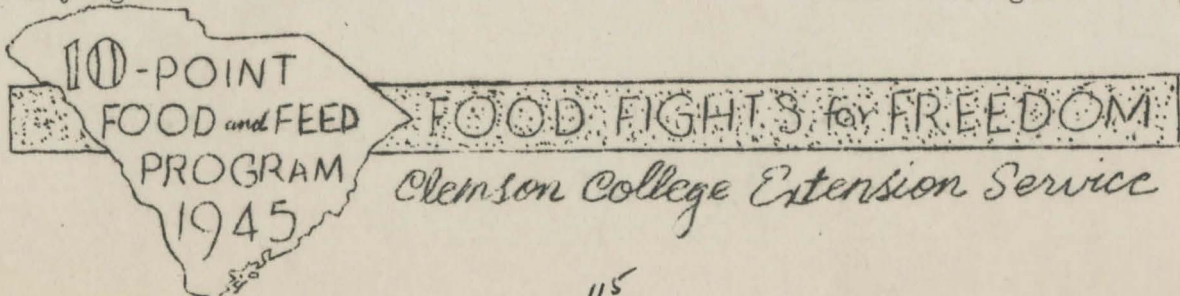 10-POINT
FOOD and FEED
PROGRAM
1945
FOOD FIGHTS for FREEDOM
Clemson College Extension Service
115